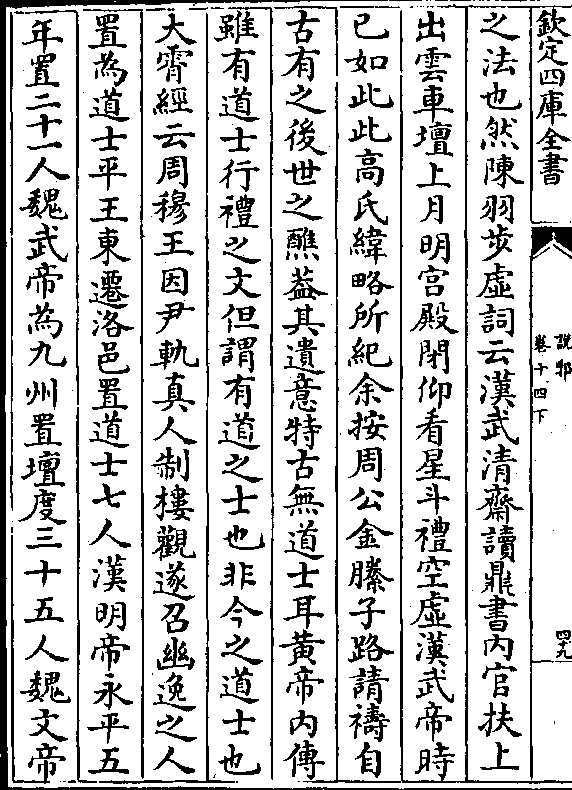 欽定四庫全書
說郛
卷十四下
四九
之法也然陳羽步虛詞云漢武清齋讀鼎書內官扶上
出雲車壇上月明宫殿閉仰看星斗禮空虛漢武帝時
已如此此高氏緯略所紀余按周公金縢子路請禱自
古有之後世之醮葢其遺意特古無道士耳黃帝內傳
雖有道士行禮之文但謂有道之士也非今之道士也
大霄經云周穆王因尹軌真人制樓觀遂召幽逸之人
置為道士平王東遷洛邑置道士七人漢明帝永平五
年置二十一人魏武帝為九州置壇度三十五人魏文帝